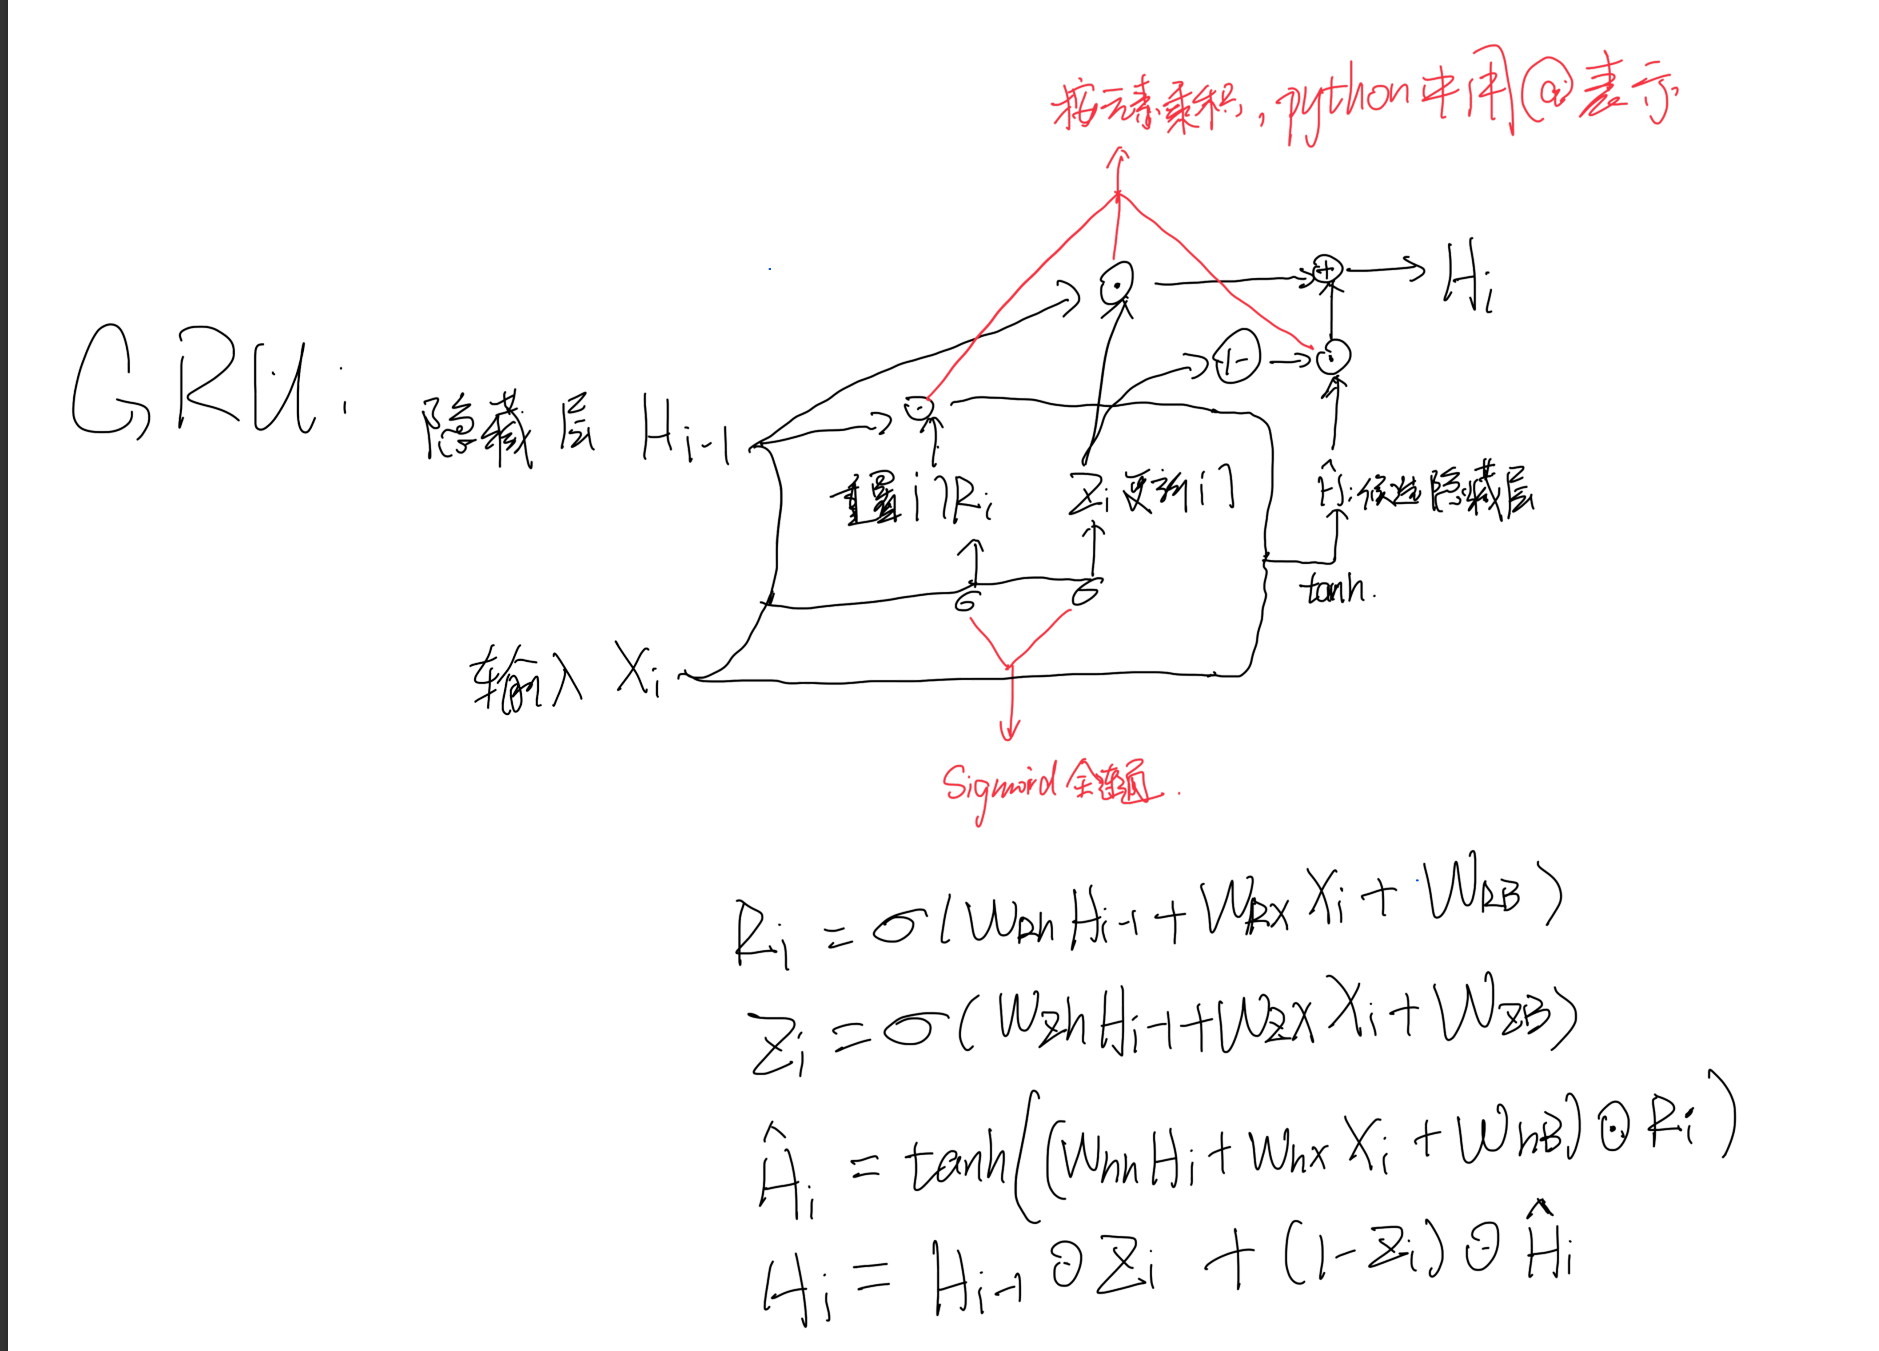 按元素乘积,python中用@表示
⊙ ⊕ → Hi
GRU: 隐藏层 Hi-1 ⊙ 1- ⊙
重置门Ri Zi更新门 Ĥi候选隐藏层
σ σ tanh.
输入 Xi
Sigmoid 全连通.
Ri = σ(WRh Hi-1 + WRX Xi + WRB)
Zi = σ(WZh Hi-1 + WZX Xi + WZB)
Ĥi = tanh((Whh Hi + Whx Xi + WhB) ⊙ Ri)
Hi = Hi-1 ⊙ Zi + (1-Zi) ⊙ Ĥi